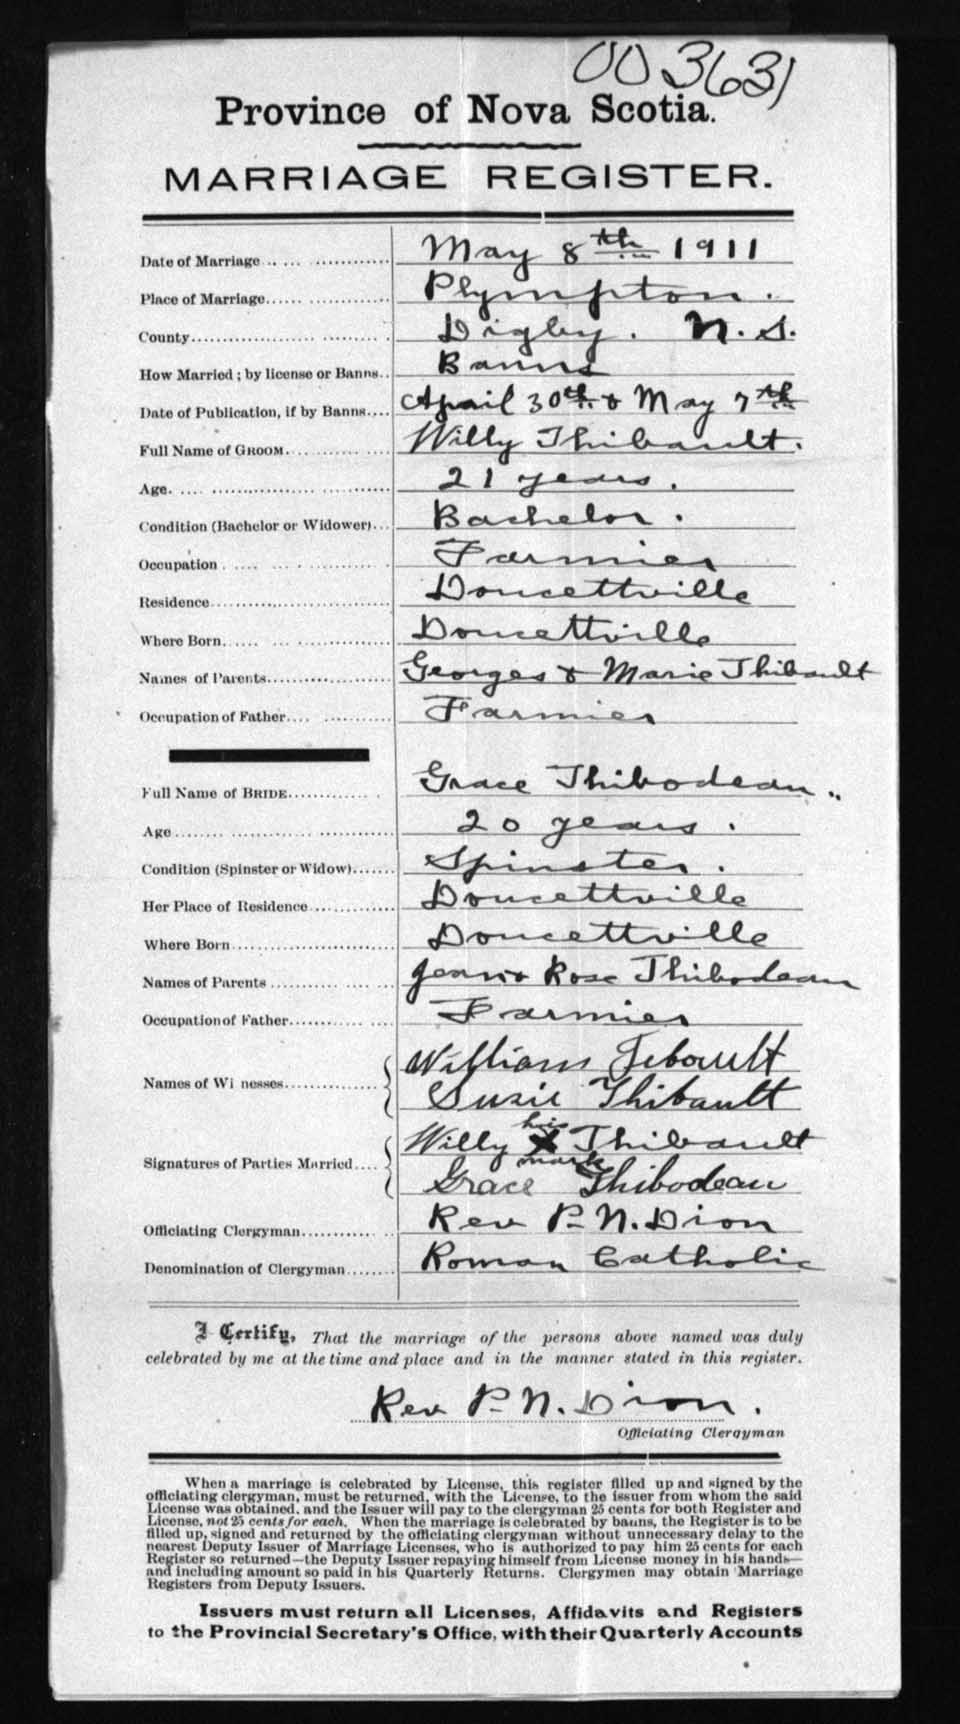 003631
Province of Nova Scotia.
MARRIAGE REGISTER.
Date of Marriage May 8th 1911
Place of Marriage Plympton.
County Digby. N.S.
How Married; by license or Banns Banns
Date of Publication, if by Banns April 30th & May 7th
Full Name of GROOM Willy Thibault.
Age 21 years.
Condition (Bachelor or Widower) Bachelor.
Occupation Farmier
Residence Doucettville
Where Born Doucettville
Names of Parents Georges & Marie Thibault
Occupation of Father Farmier
Full Name of BRIDE Grace Thibodeau..
Age 20 years.
Condition (Spinster or Widow) Spinster.
Her Place of Residence Doucettville
Where Born Doucettville
Names of Parents Jean & Rose Thibodeau
Occupation of Father Farmier
Names of Wi nesses William Tebault
Suzie Thibault
his
Signatures of Parties Married Willy X Thibault
mark
Grace Thibodeau
Officiating Clergyman Rev P. N. Dion
Denomination of Clergyman Roman Catholic
I Certify, That the marriage of the persons above named was duly
celebrated by me at the time and place and in the manner stated in this register.
Rev P. N. Dion.
Officiating Clergyman
When a marriage is celebrated by License, this register filled up and signed by the
officiating clergyman, must be returned, with the License, to the issuer from whom the said
License was obtained, and the Issuer will pay to the clergyman 25 cents for both Register and
License, not 25 cents for each. When the marriage is celebrated by banns, the Register is to be
filled up, signed and returned by the officiating clergyman without unnecessary delay to the
nearest Deputy Issuer of Marriage Licenses, who is authorized to pay him 25 cents for each
Register so returned—the Deputy Issuer repaying himself from License money in his hands—
and including amount so paid in his Quarterly Returns. Clergymen may obtain Marriage
Registers from Deputy Issuers.
Issuers must return all Licenses, Affidavits and Registers
to the Provincial Secretary's Office, with their Quarterly Accounts